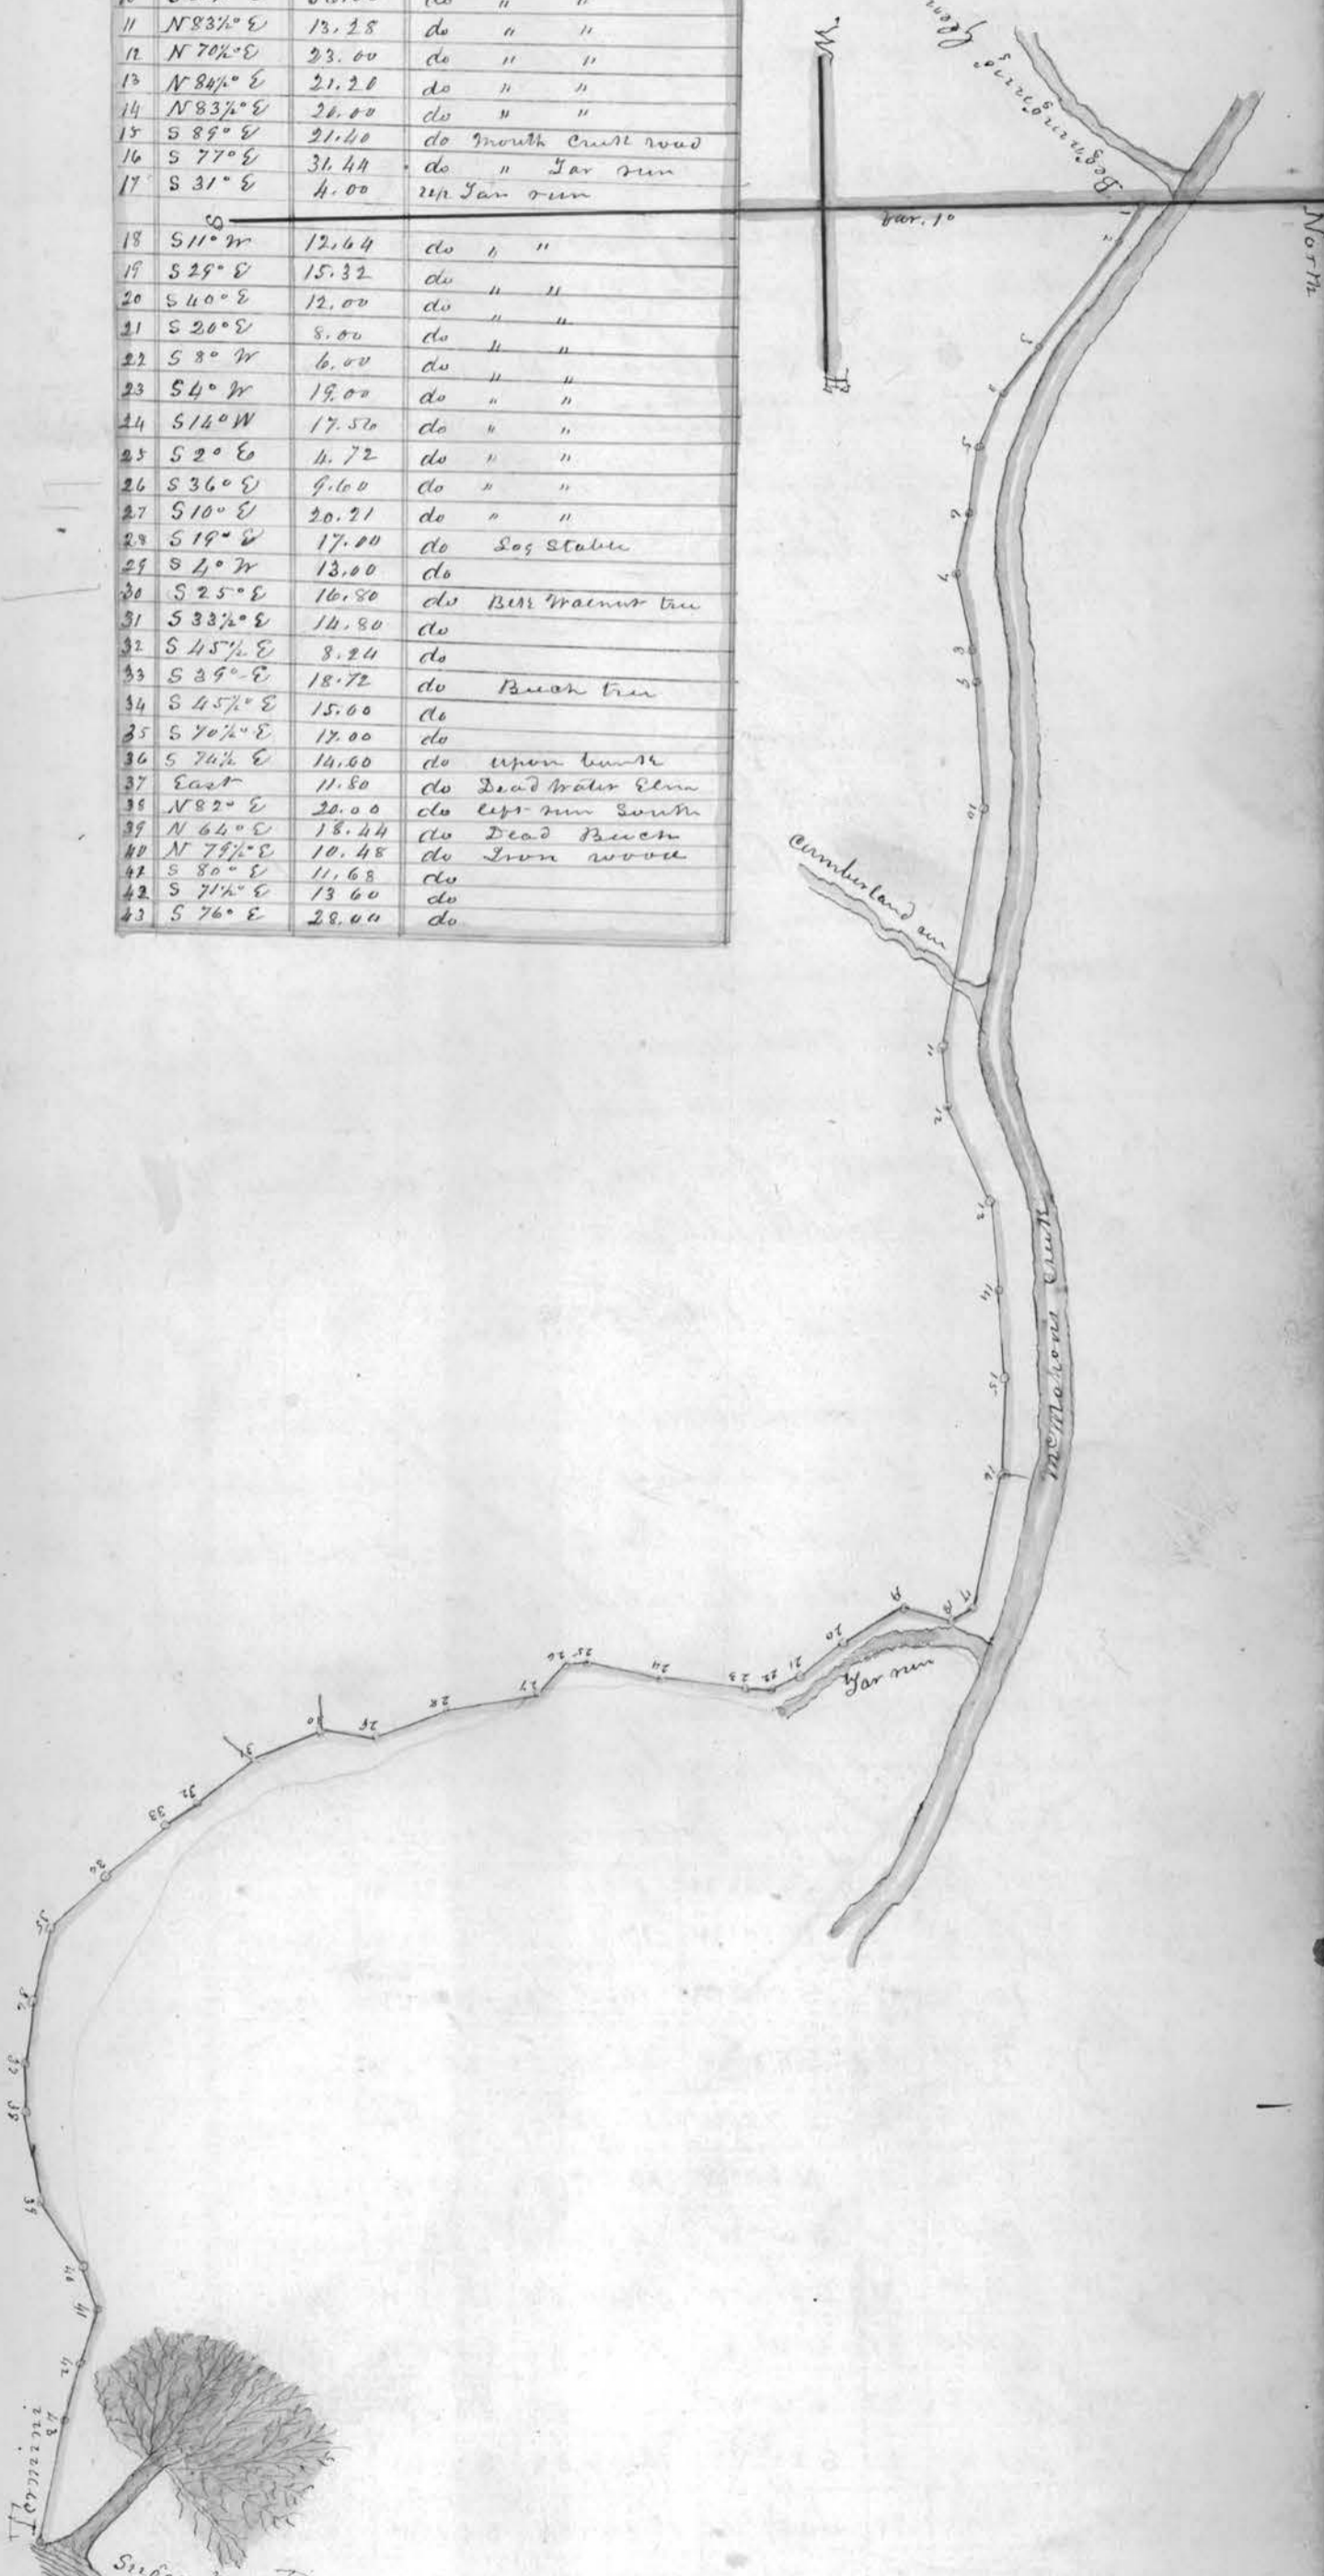 11 N 83½° E 13.28 do " "
12 N 70½° E 23.00 do " "
13 N 84½° E 21.20 do " "
14 N 83½° E 20.00 do " "
15 S 89° E 21.40 do mouth Creek road
16 S 77° E 31.44 do " Tar run
17 S 31° E 4.00 up Tar run
S
18 S 11° W 12.64 do " "
19 S 29° E 15.32 do
20 S 40° E 12.00 do " "
21 S 20° E 8.00 do " "
22 S 8° W 6.00 do " "
23 S 4° W 19.00 do " "
24 S 14° W 17.50 do " "
25 S 2° E 4.72 do " "
26 S 36° E 9.60 do " "
27 S 10° E 20.21 do " "
28 S 19° E 17.00 do Log Stable
29 S 4° W 13.00 do
30 S 25° E 16.80 do Walnut tree
31 S 33½° E 14.80 do
32 S 45½ E 8.24 do
33 S 39° E 18.72 do Beech tree
34 S 45½° E 15.60 do
35 S 70½° E 17.00 do
36 S 74½ E 14.60 do upon bank
37 East 11.80 do Dead Water Elm
38 N 82° E 20.00 do left run South
39 N 64° E 18.44 do Dead Beech
40 N 79½° E 10.48 do Iron wood
42 S 80° E 11.68 do
42 S 71½° E 13 60 do
43 S 76° E 28.00 do
W
E
North
var. 1°
Glen
Beginning
1
2
3
4
5
6
7
8
9
10
Cumberland run
11
12
13
14
15
16
McMahons Creek
17
18
19
20
21
22
23
24
25
26
27
28
29
30
31
32
33
34
35
36
37
38
39
40
41
42
43
Tar run
Termini